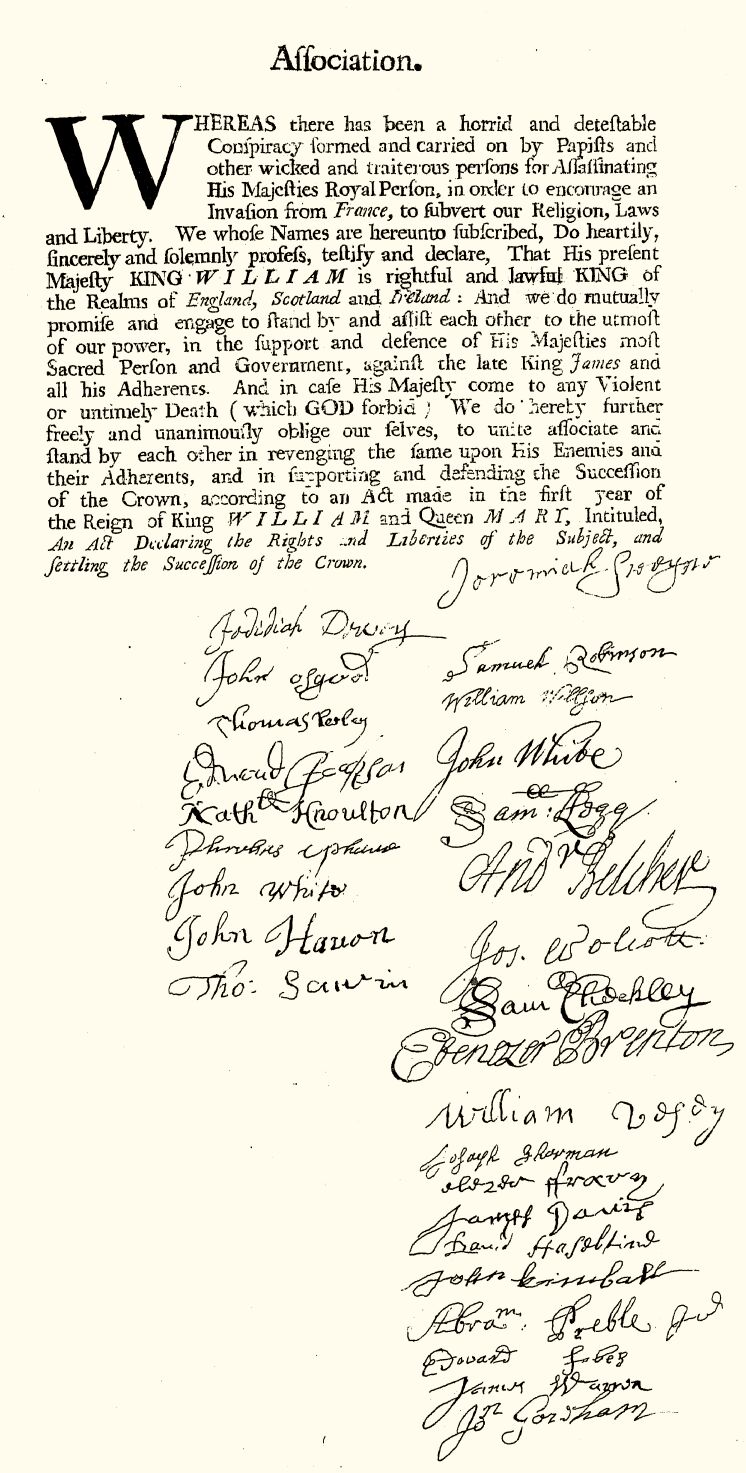 Aſſociation.
WHEREAS there has been a horrid and deteſtable
Conſpiracy formed and carried on by Papiſts and
other wicked and traiterous perſons for Aſſaſſinating
His Majeſties Royal Perſon, in order to encourage an
Invaſion from France, to ſubvert our Religion, Laws
and Liberty. We whoſe Names are hereunto ſubſcribed, Do heartily,
ſincerely and ſolemnly profeſs, teſtify and declare, That His preſent
Majeſty KING WILLIAM is rightful and lawful KING of
the Realms of England, Scotland and Ireland : And we do mutually
promiſe and engage to ſtand by and aſſiſt each other to the utmoſt
of our power, in the ſupport and defence of His Majeſties moſt
Sacred Perſon and Government, againſt the late King James and
all his Adherents. And in caſe His Majeſty come to any Violent
or untimely Death ( which GOD forbid ) We do hereby further
freely and unanimouſly oblige our ſelves, to unite aſſociate and
ſtand by each other in revenging the ſame upon His Enemies and
their Adherents, and in ſupporting and defending the Succeſſion
of the Crown, according to an Act made in the firſt year of
the Reign of King WILLIAM and Queen MARY, Intituled,
An Act Declaring the Rights and Liberties of the Subject, and
ſettling the Succeſſion of the Crown.
Jeremiah
Jedidiah Dewey
John oſgood
Thomas Perley
Edward Jackson
Nath^ll Knoulton
John White
John Hauon
Tho: Sawin
Samuel Robinson
William Willson
John White
Sam: Legg
And^r Belcher
Jos. Wolcott.
Sam Checkley
Ebenezer Brenton
William Vesey
Joseph Sherman
James Davis
David Haseltine
John kimball
Abra^m: Preble Ju^r
Edward fobes
James Warren
Jn^o Gorsham